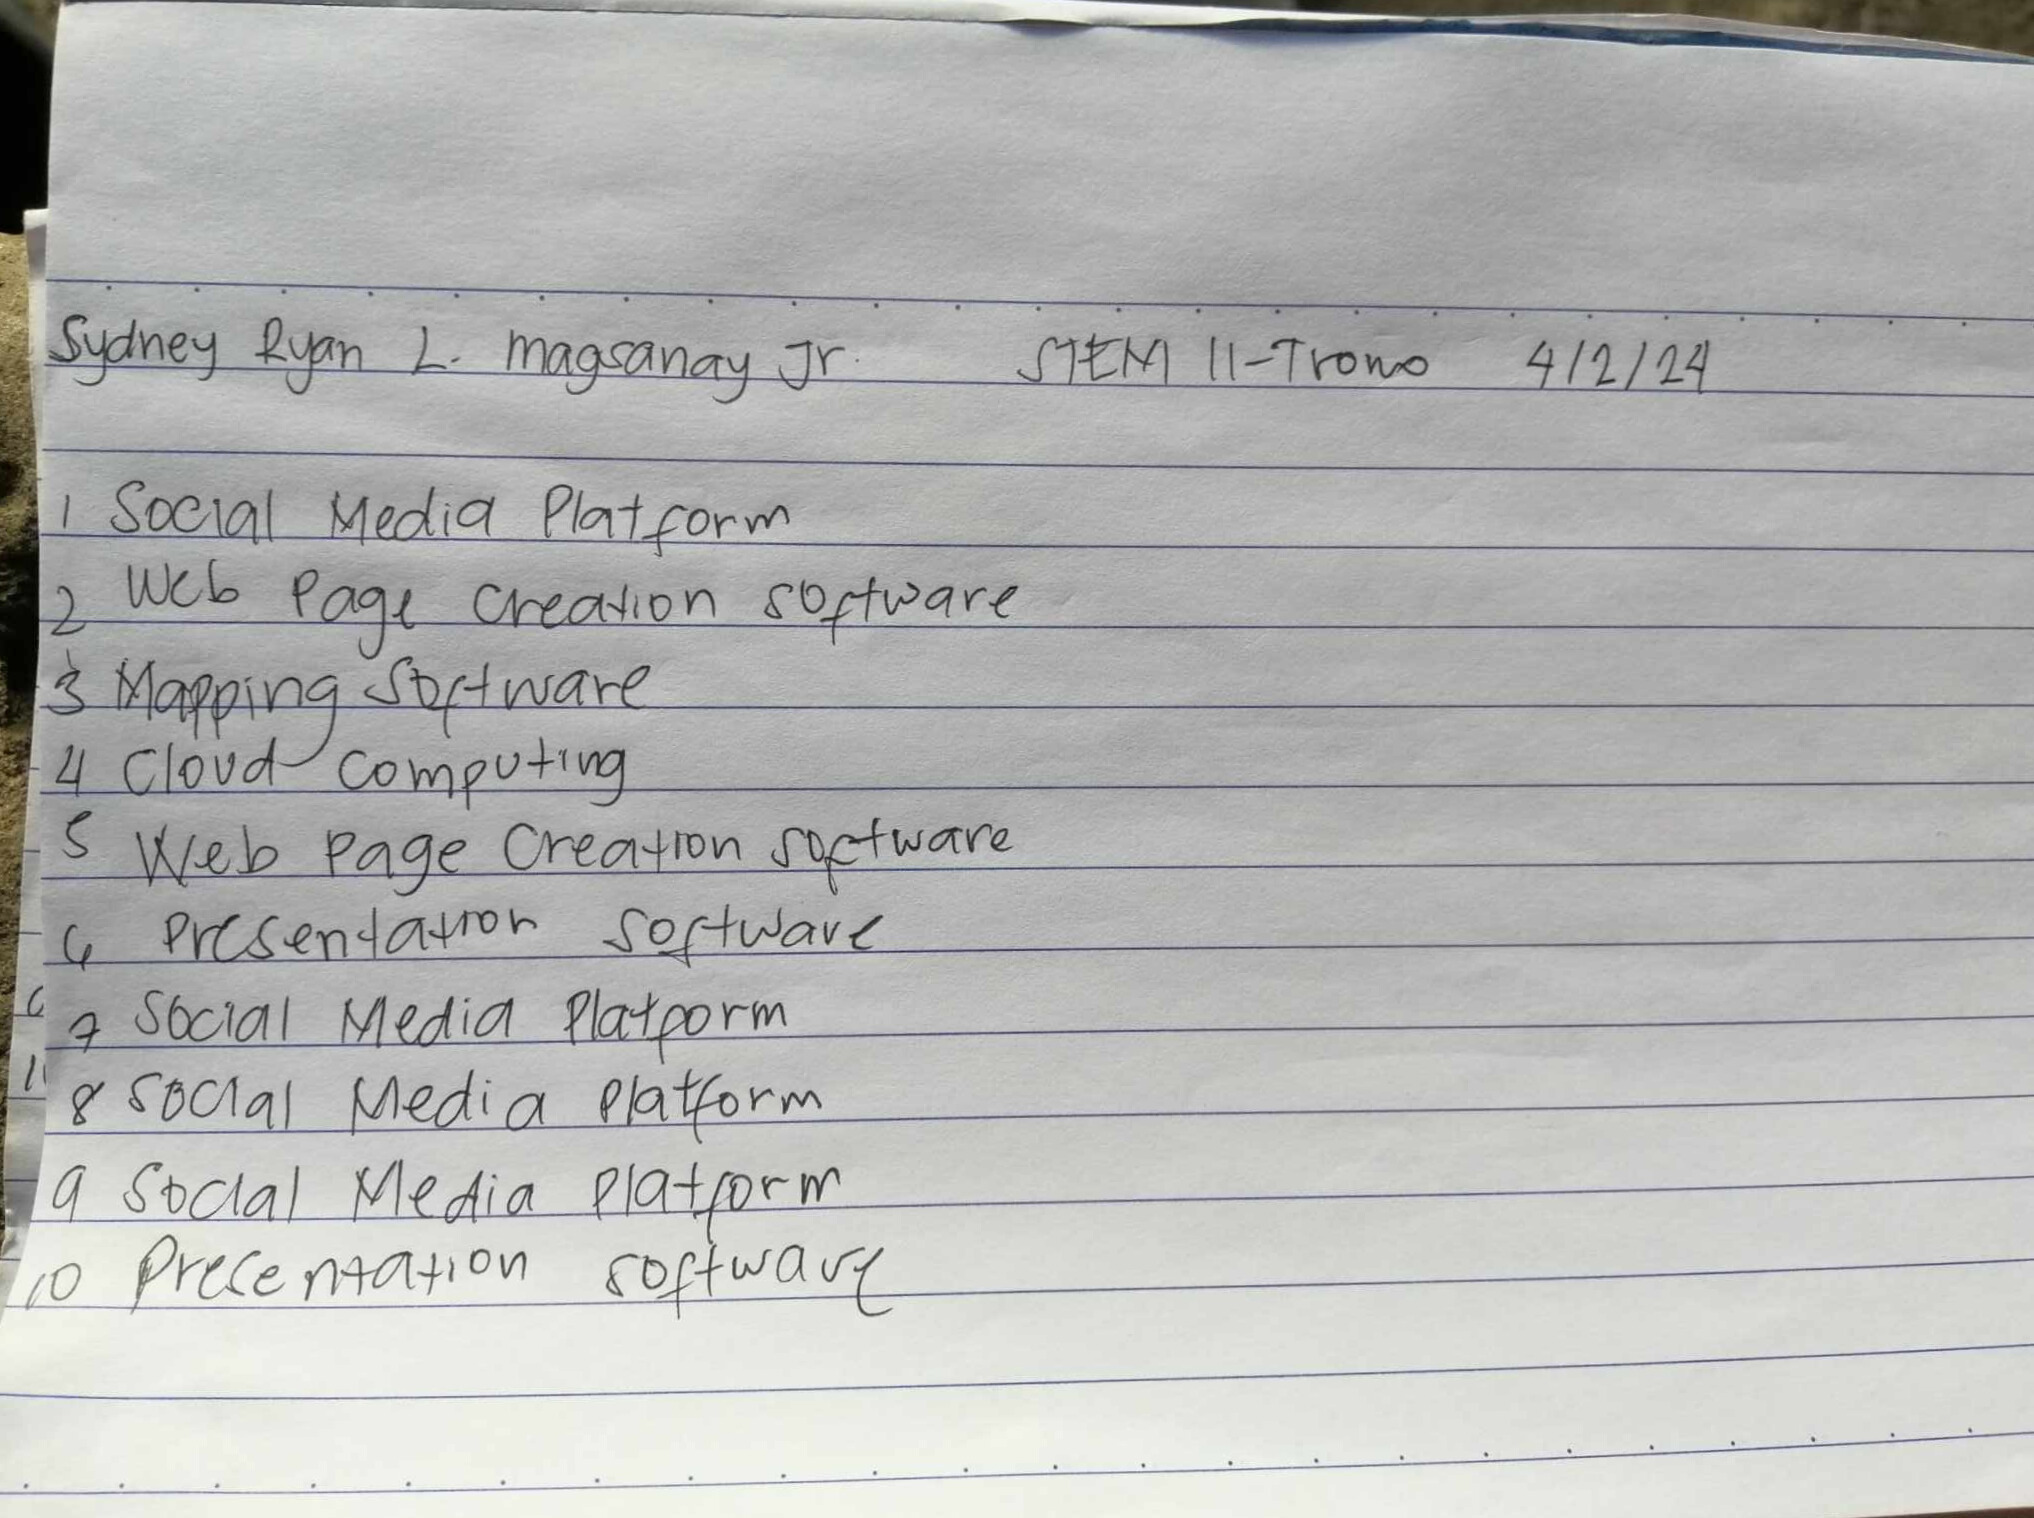 Sydney Ryan L. Magsanay Jr. STEM 11-Trono 4/2/24
1 Social Media Platform
2 Web Page Creation software
3 Mapping Software
4 Cloud computing
5 Web Page Creation software
6 Presentation software
7 Social Media Platform
8 Social Media Platform
9 Social Media Platform
10 Presentation software